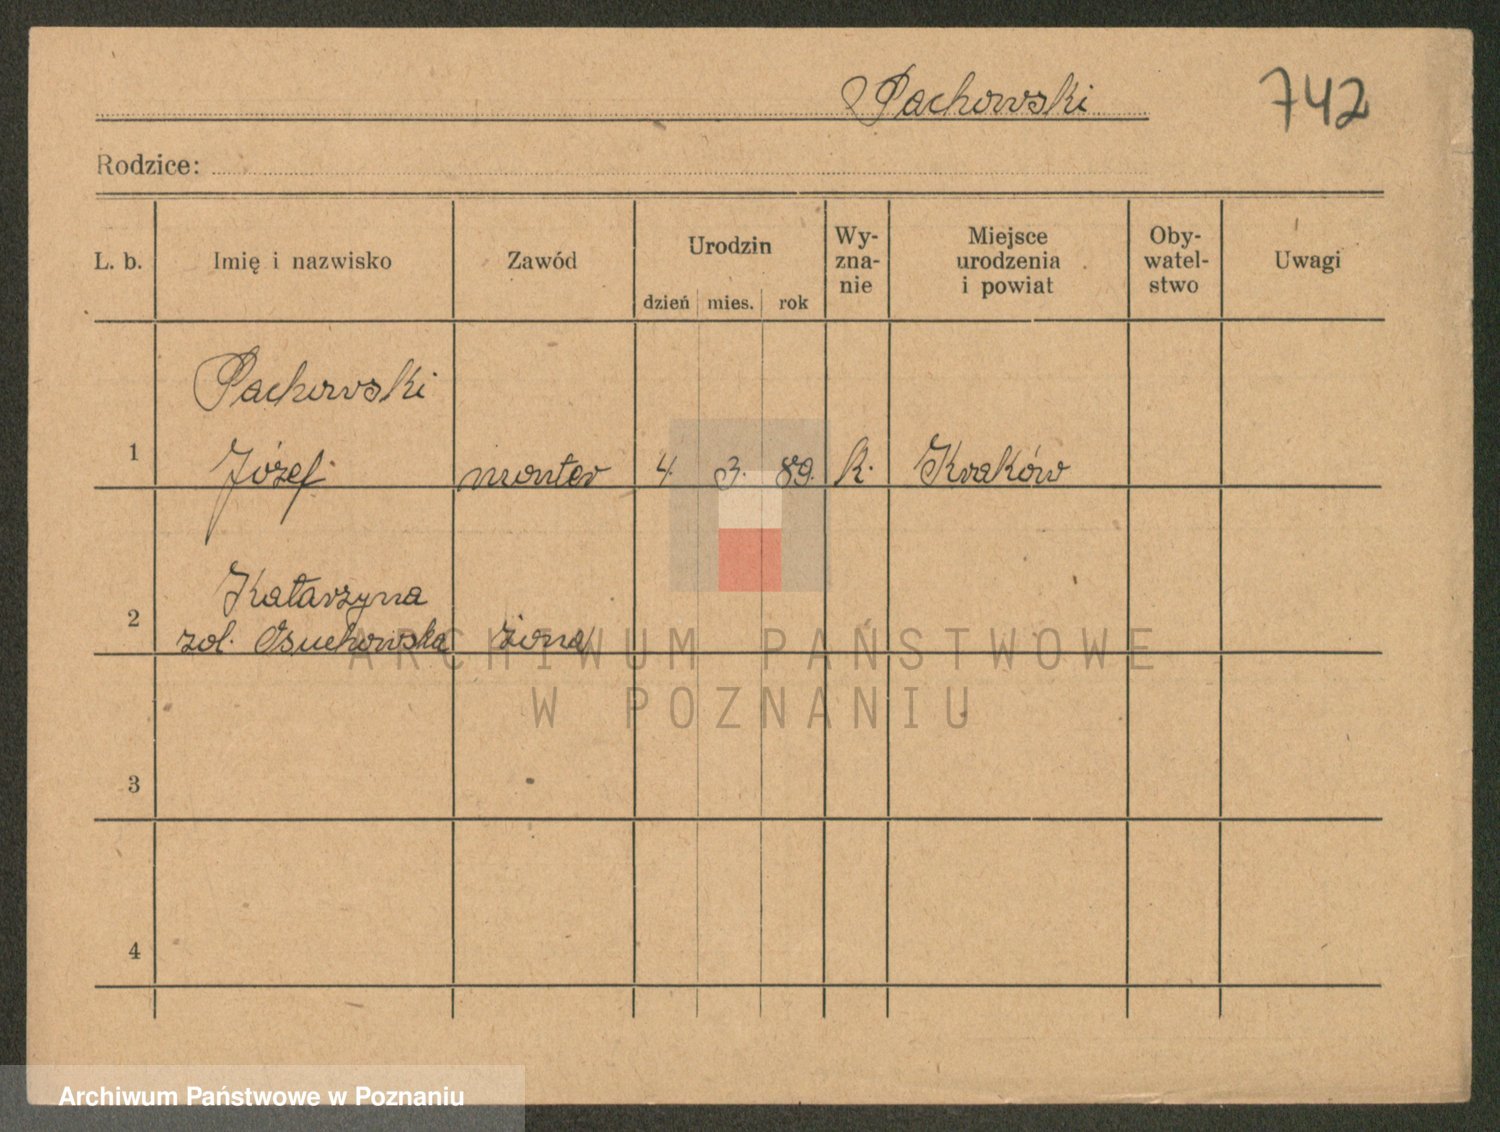 Pachowski
742
Rodzice:
L. b.
Imię i nazwisko
Zawód
Urodzin
dzień
mies.
rok
Wy-
zna-
nie
Miejsce
urodzenia
i powiat
Oby-
watel-
stwo
Uwagi
Pachowski
1
Józef
monter
4.
3.
89.
k.
Kraków
Katarzyna
2
zol. Osuchowska
żona
3
4
ARCHIWUM PAŃSTWOWE
W POZNANIU
Archiwum Państwowe w Poznaniu